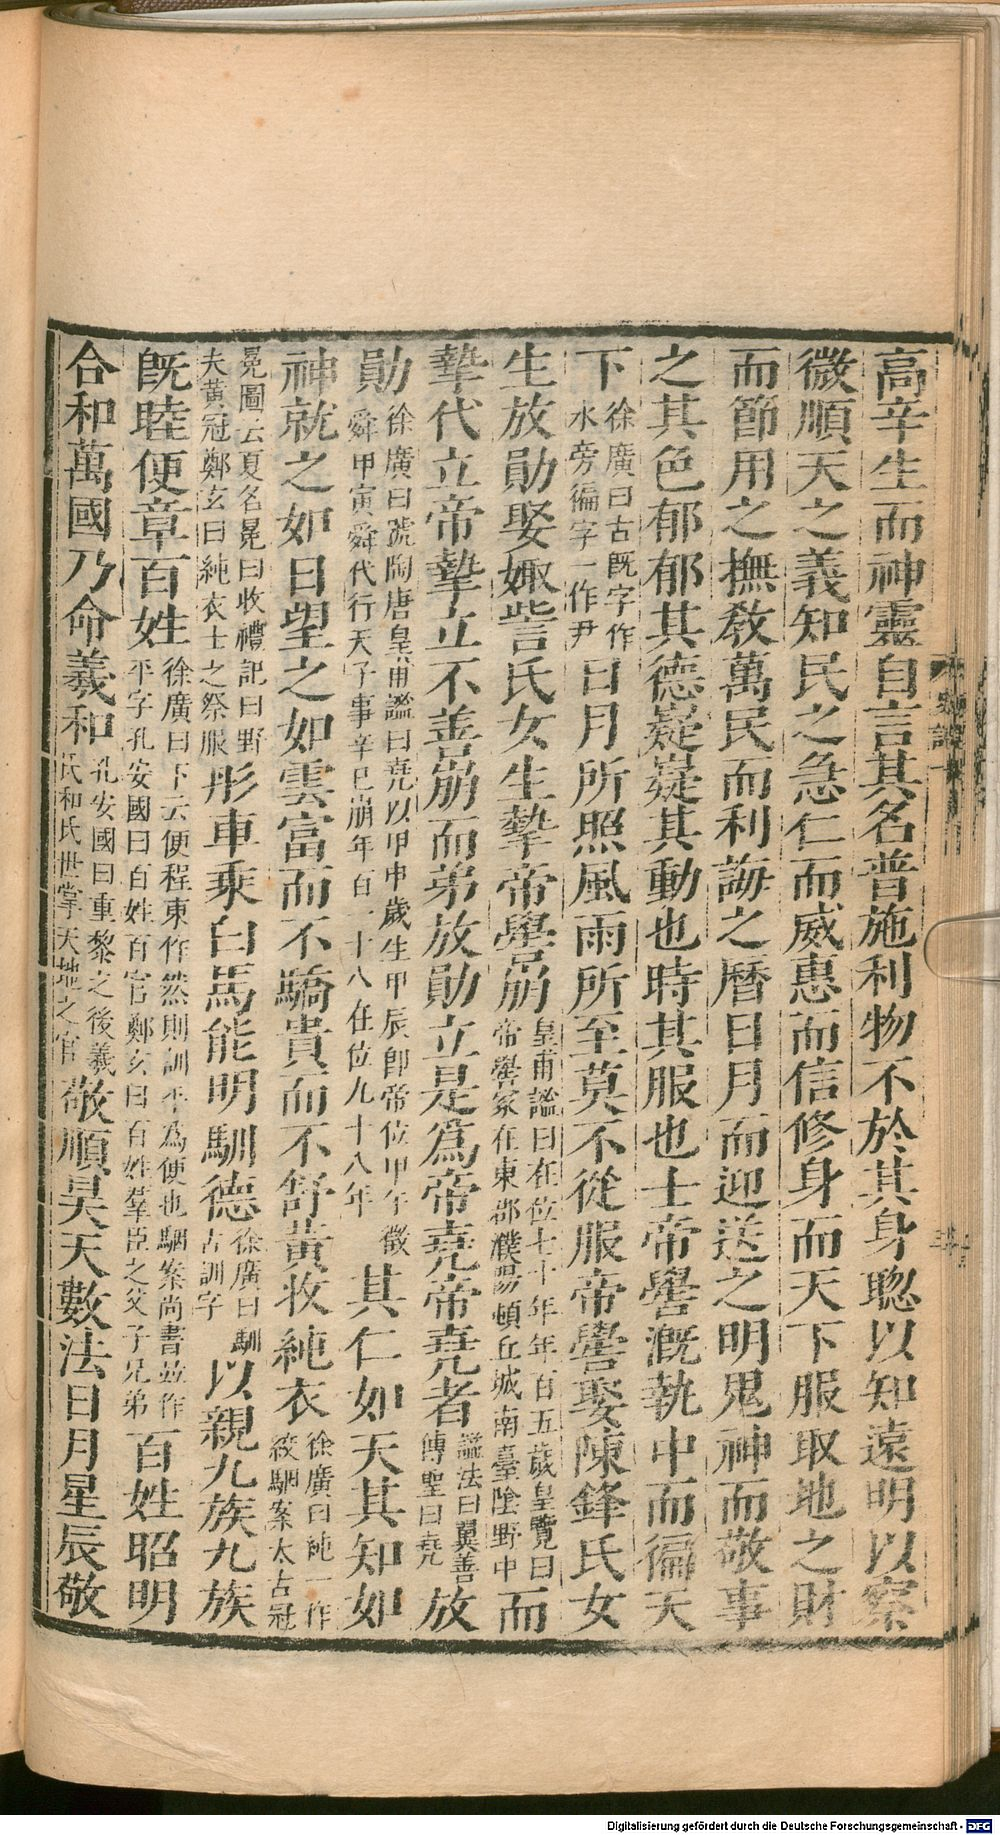 高辛生而神靈自言其名普施利物不於其身聦以知遠明以察
微順天之義知民之急仁而威惠而信修身而天下服取地之財
而節用之撫敎萬民而利誨之曆日月而迎送之明鬼神而敬事
之其色郁郁其德嶷嶷其動也時其服也士帝嚳漑執中而徧天
下徐廣曰古旣字作水旁徧字一作尹日月所照風雨所至莫不從服帝嚳娶陳鋒氏女
生放勛娶娵訾氏女生摯帝嚳崩皇甫謐曰在位七十年年百五歲皇覽曰帝嚳冢在東郡濮陽頓丘城南臺陰野中而
摯代立帝摯立不善崩而弟放勛立是爲帝堯帝堯者謚法曰翼善傳聖曰堯放
勛徐廣曰號陶唐皇甫謐曰堯以甲申歲生甲辰卽帝位甲午徵舜甲寅舜代行天子事辛巳崩年百一十八在位九十八年其仁如天其知如
神就之如日望之如雲富而不驕貴而不舒黃收純衣徐廣曰純一作紋駰案太古冠
冕圖云夏名冕曰收禮記曰野夫黃冠鄭玄曰純衣士之祭服彤車乘白馬能明馴德徐廣曰馴古訓字以親九族九族
旣睦便章百姓徐廣曰下云便程東作然則訓平爲便也駰案尚書並作平字孔安國曰百姓百官鄭玄曰百姓羣臣之父子兄弟百姓昭明
合和萬國乃命羲和孔安國曰重黎之後羲氏和氏世掌天地之官敬順昊天數法日月星辰敬
Digitalisierung gefördert durch die Deutsche Forschungsgemeinschaft - DFG